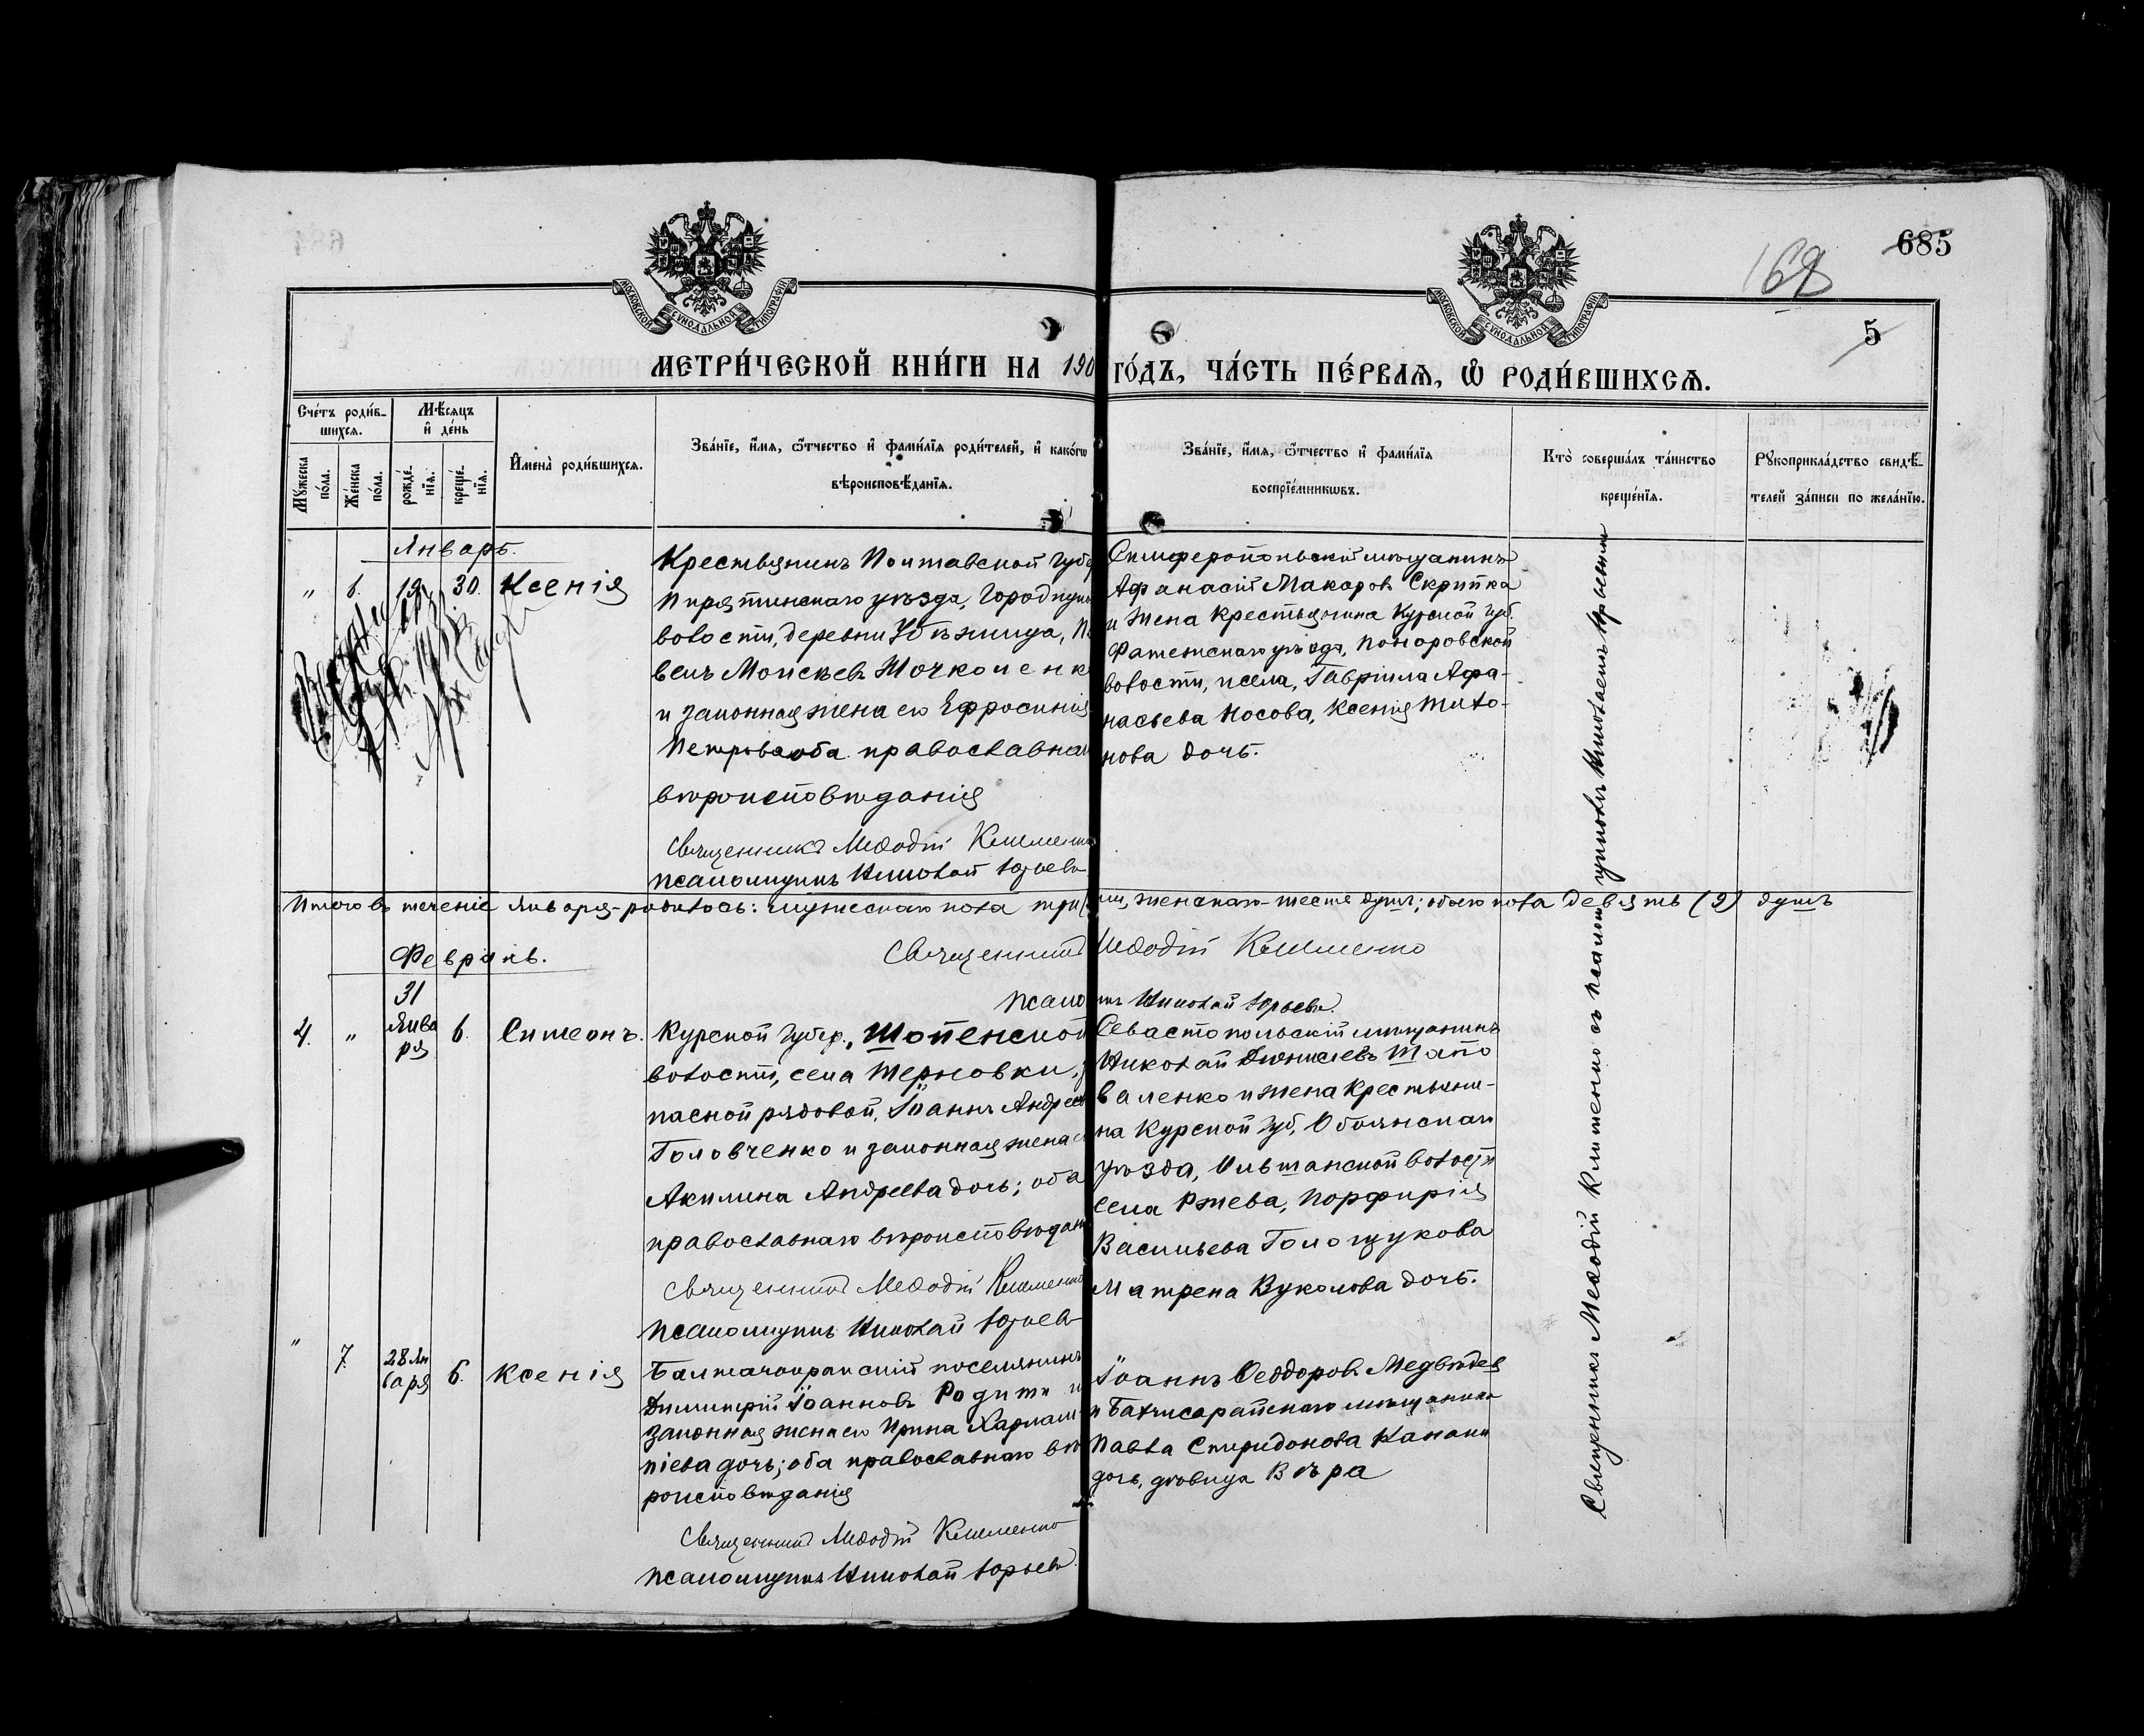 685
168
5
МОСКОВСКОЙ СѴНОДАЛЬНОЙ ТИПОГРАФІИ
МОСКОВСКОЙ СѴНОДАЛЬНОЙ ТИПОГРАФІИ
МЕТРИ́ЧЕСКОЙ КНИ́ГИ НА 190 ГО́ДЪ, ЧА́СТЬ ПЕ́РВАЯ, Ѡ РОДИ́ВШИХСЯ.
Сче́тъ роди́в-
шихся.
Мѣ́сяцъ
и де́нь
Му́жеска
по́ла.
Же́нска
по́ла.
рожде́-
нїя.
креще́-
нїя.
Имена̀ роди́вшихся.
Зва́нїе, и́мя, ѻ́тчество и фами́лїя роди́телей, и како́гѡ
вѣроисповѣ́данїя.
Зва́нїе, и́мя, ѻ́тчество и фами́лїя
воспрїе́мникѡвъ.
Кто̀ соверша́лъ та́инство
креще́нїя.
Рꙋкоприкла́дство свидѣ́-
телей за́писи по жела́нїю.
Январь.
" 6. 19. 30. Ксенія
Крестьянинъ Полтавской губ
Пирятинскаго уѣзда, Город
волости, деревни Убѣжища, Па
велъ Моисѣевъ Мочколенк
и законная жена его Ефросинія
Петрова оба православна
вѣроисповѣданія
Священникъ Меѳодій Клименко
Псаломщикъ Николай Юрьевъ
Симферопольскій мѣщанинъ
Афанасій Макаровъ Скрипка
и жена крестьянина Курской губ.
Фатежскаго уѣзда,
волости, села, Гавріила Афа-
насьева Носова, Ксенія Тито-
нова дочь.
Итого въ теченіе января родилось: мужескаго пола три, женскаго-шесть душъ; обоего пола девять (9) душъ
Священникъ Меѳодій Клименко
Николай Юрьевъ.
Февраль.
4. " 31 Янва ря 6. Симеонъ.
Курской губер., Шопенской
волости, села Терновки,
пасной рядовой, Іоаннъ Андрее
Головченко и законная жена
Акилина Андреева дочь; оба
православнаго вѣроисповѣдан
Священникъ Меѳодій Клименко
Псаломщикъ Николай Юрьевъ
Севастопольскій мѣщанинъ
Николай Діонисіевъ Шапо
валенко и жена крестьяни-
на Курской губ, Обоянскаго
уѣзда, Ольшанской волости
села Ржева, Порфирія
Васильева Голощукова
Матрена Вуколова дочь.
" 7. 28 Ян варя 6. Ксенія
поселянинъ
Димитрій Іоанновъ Родити и
законная жена его Ирина Харлам-
піева дочь; оба православнаго вѣ
роисповѣданія
Священникъ Меѳодій Клименко
Псаломщикъ Николай Юрьевъ
Іоаннъ Ѳеодоровъ Медвѣдев
и Бахчисарайскаго мѣщанина
Павла Спиридонова Канаки
дочь, дѣвица Вѣра
Священникъ Меѳодій Клименко съ псаломщикомъ Николаемъ Юрьевымъ